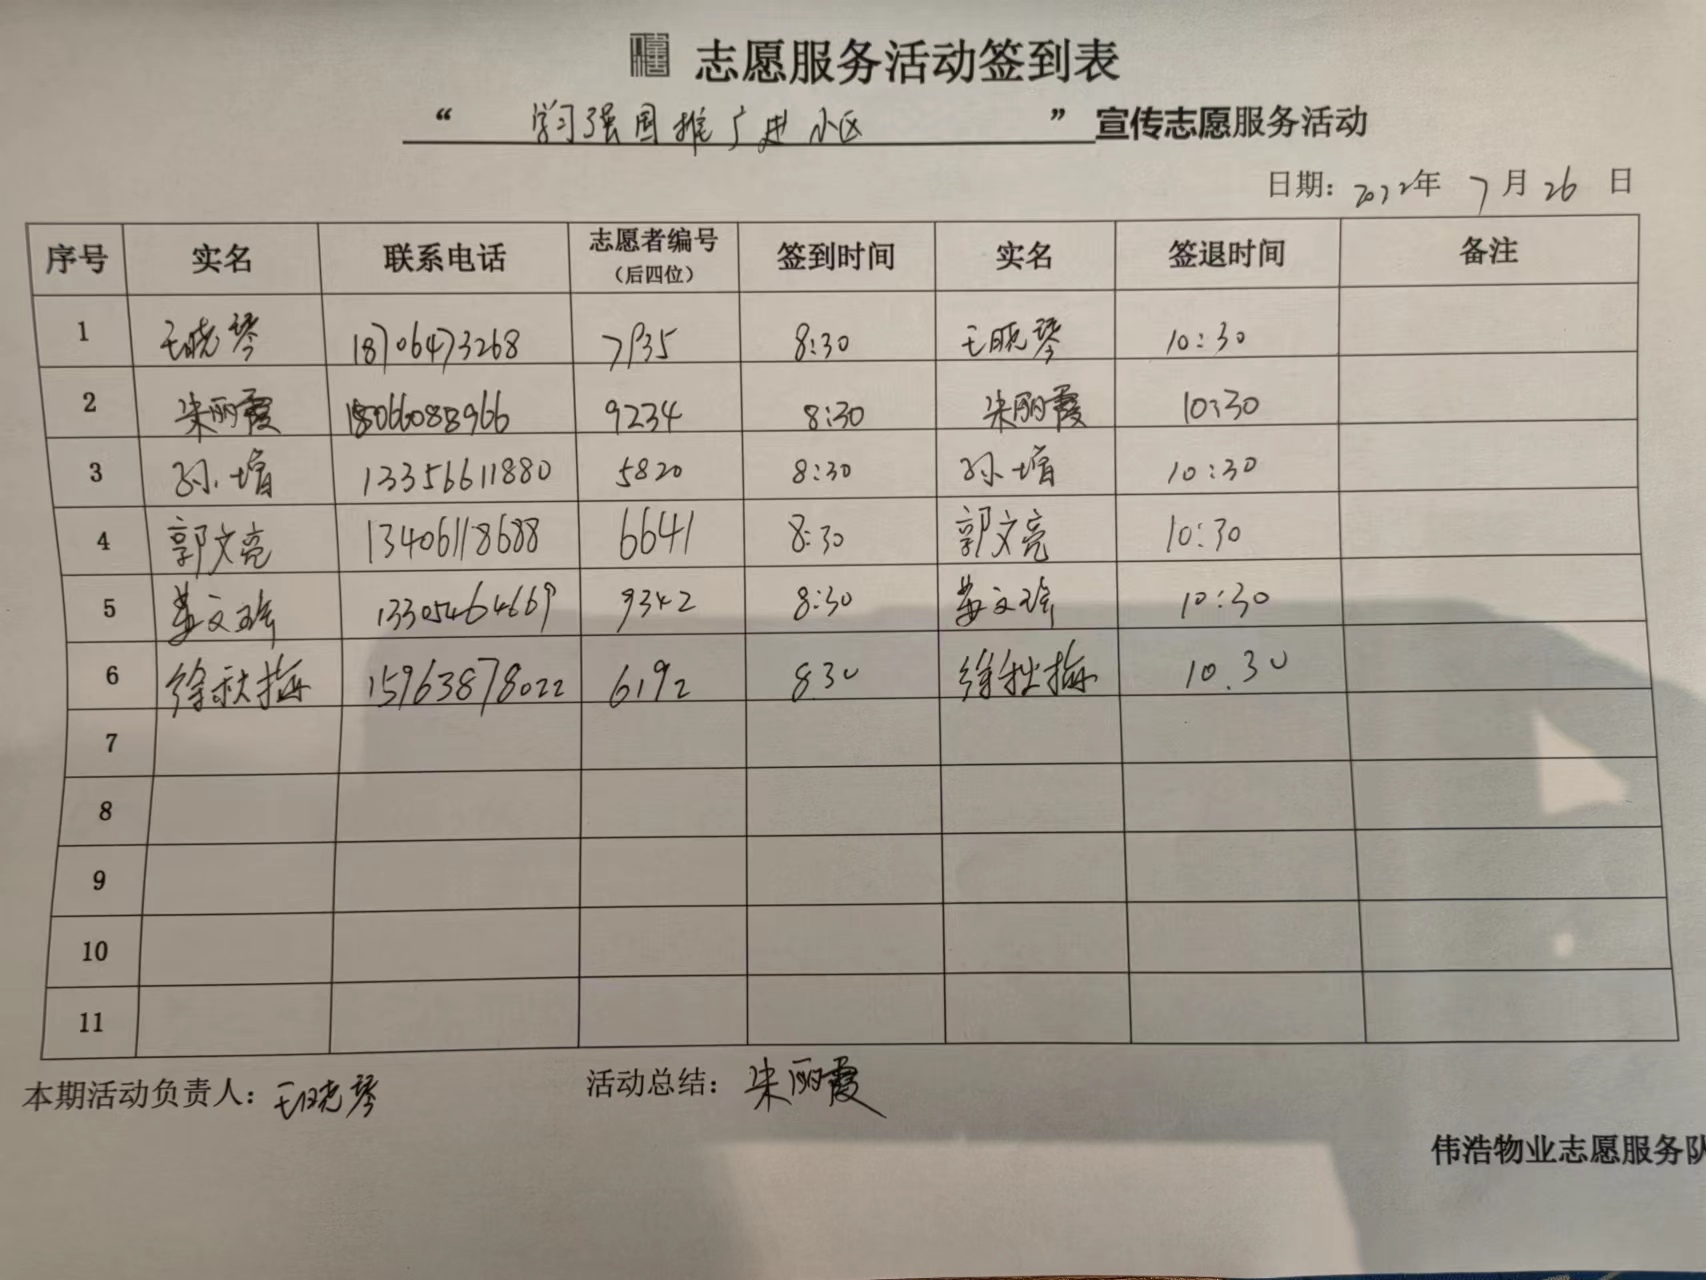 志愿服务活动签到表
“ 学习强国推广进小区 ” 宣传志愿服务活动
日期：2022年 7月26 日
序号 实名 联系电话 志愿者编号（后四位） 签到时间 实名 签退时间 备注
1 王晓琴 18706473268 7935 8:30 王晓琴 10:30
2 朱丽霞 18066088966 9234 8:30 朱丽霞 10:30
3 孙 13356611880 5820 8:30 孙 10:30
4 郭文亮 13406118688 6641 8:30 郭文亮 10:30
5 姜文 13305464669 9342 8:30 姜文 10:30
6 徐秋梅 15963878022 6192 830 徐秋梅 10.30
7
8
9
10
11
本期活动负责人：王晓琴 活动总结：朱丽霞
伟浩物业志愿服务队